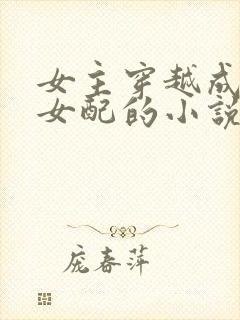 女主穿越成
女配的小說
庞春萍